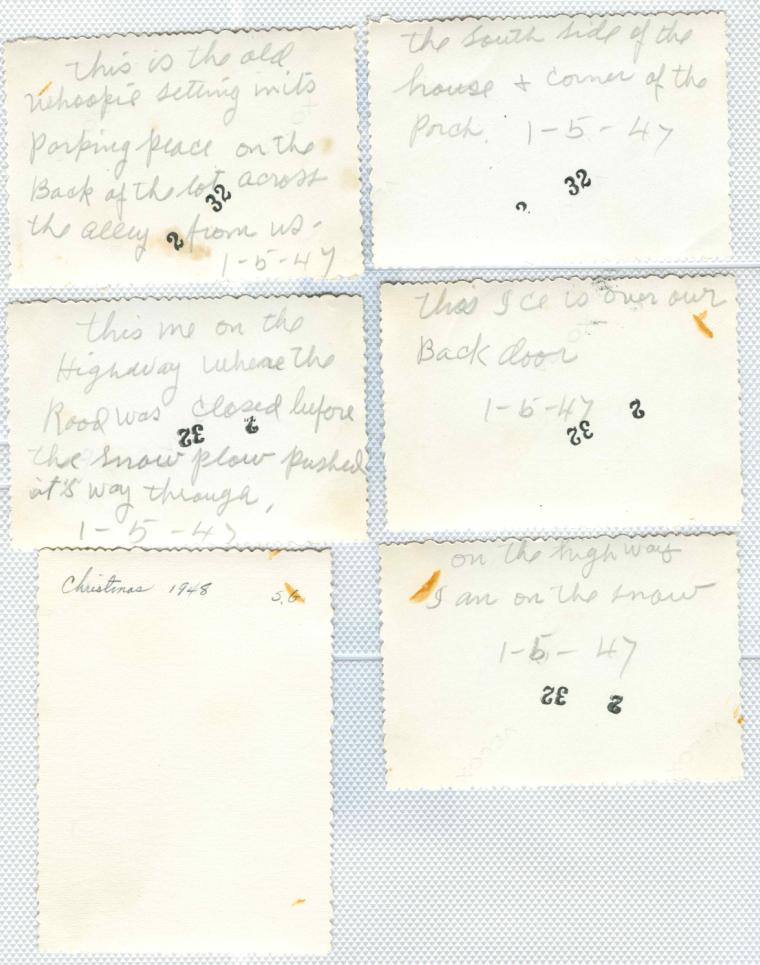 this is the old
Whoopie setting in its
Parking place on the
Back of the lot across
the alley from us.
1-5-47
32
2
the South Side of the
house & corner of the
Porch. 1-5-47
32
this me on the
Highway where the
Road was closed before
the snow plow pushed
it's way through,
1-5-47
2
32
this Ice is over our
Back door
1-5-47
2
32
Christmas 1948 S.G
on the high way
I am on the snow
1-5-47
32
2
VELOX
VELOX